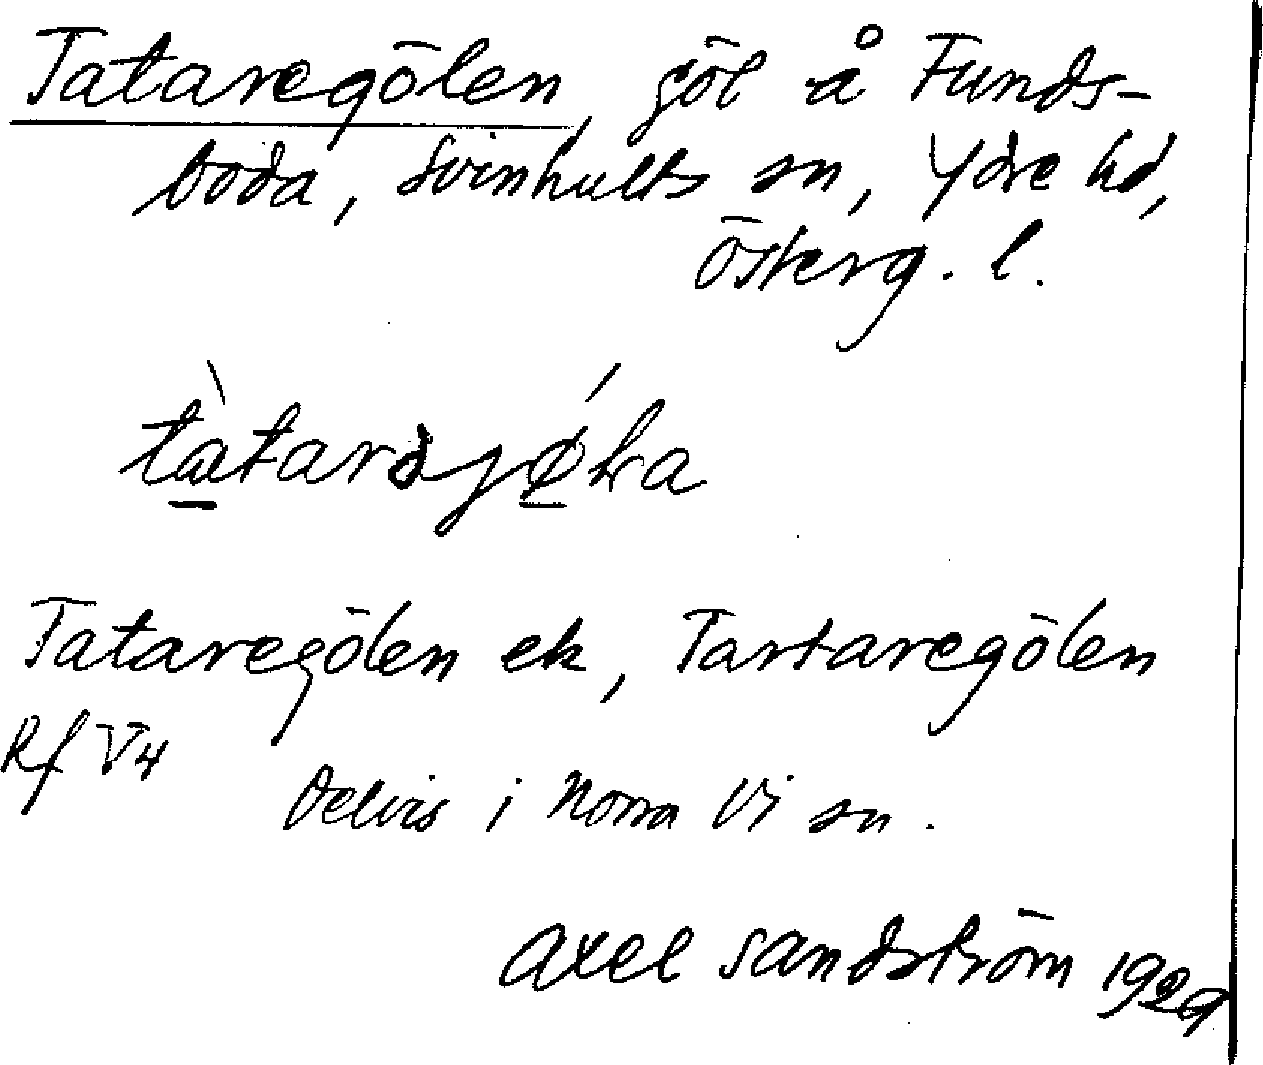 Tataregölen, göl å Funds-
boda, Svinhults sn, Ydre hd,
Österg. l.
tàtarəjǿla
Tataregölen ek, Tartaregölen
Rf V4
Delvis i Norra Vi sn.
Axel Sandström 1929